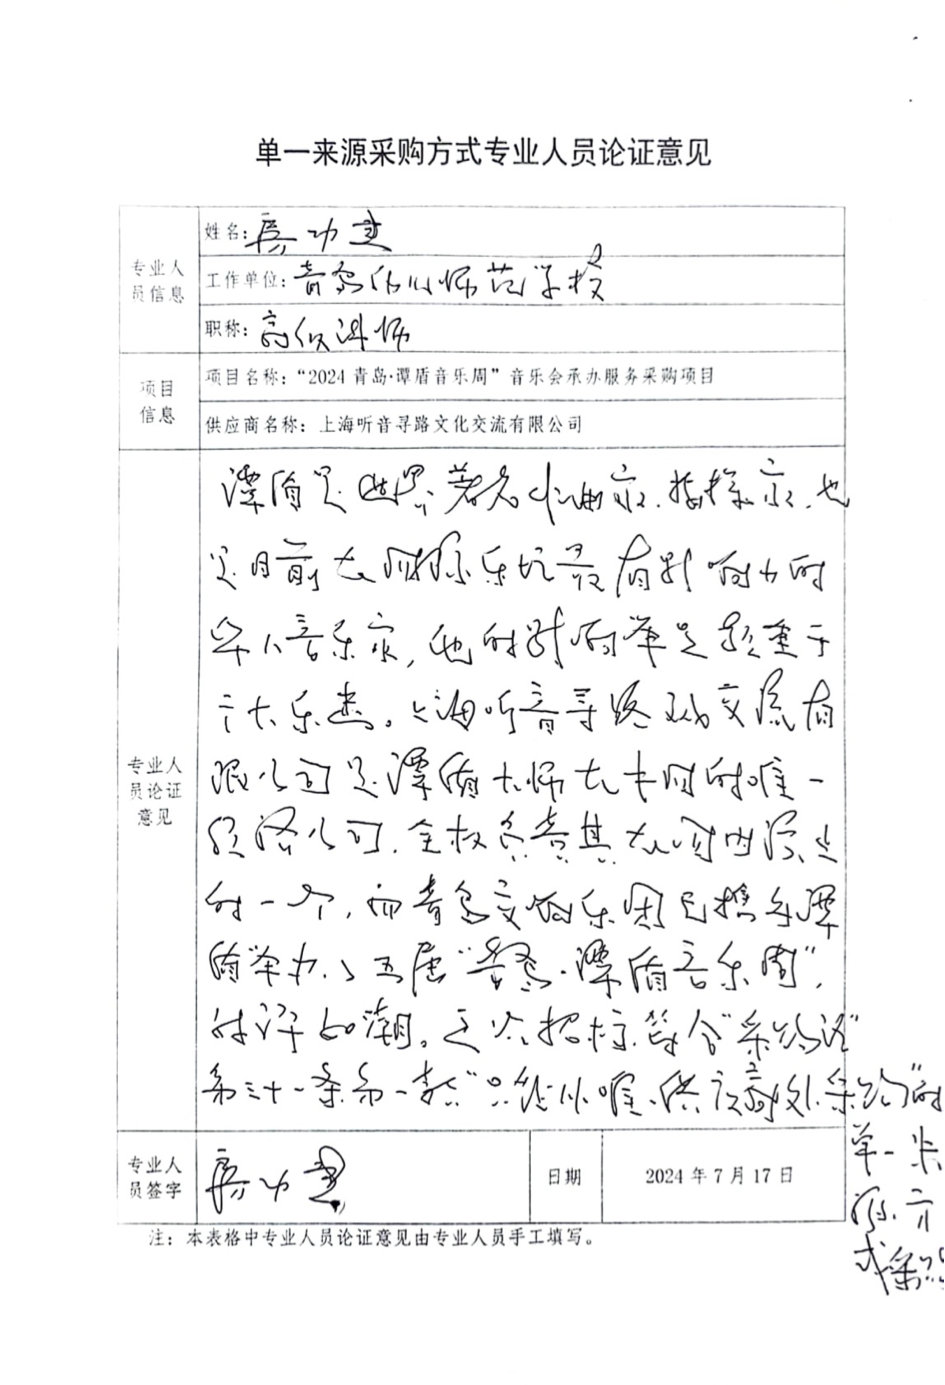 单一来源采购方式专业人员论证意见
专业人员信息
姓名：房功建
工作单位：青岛幼儿师范学校
职称：高级讲师
项目信息
项目名称：“2024 青岛·谭盾音乐周”音乐会承办服务采购项目
供应商名称：上海听音寻路文化交流有限公司
专业人员论证意见
谭盾是世界著名作曲家、指挥家，也
是目前在国际乐坛最有影响力的
华人音乐家，他的影响举足轻重于
大乐类。上海听音寻路文化交流有
限公司是谭盾大师在中国的唯一
经济公司，全权负责其在国内演出
的一个，而青岛交响乐团已携手谭
盾举办了五届“青岛·谭盾音乐周”，
好评如潮。这次招标符合“采购法”
第三十一条第一款“只能从唯一供应商处采购”的
单一来
源方
式采购
专业人员签字
房功建
日期
2024 年 7 月 17 日
注：本表格中专业人员论证意见由专业人员手工填写。